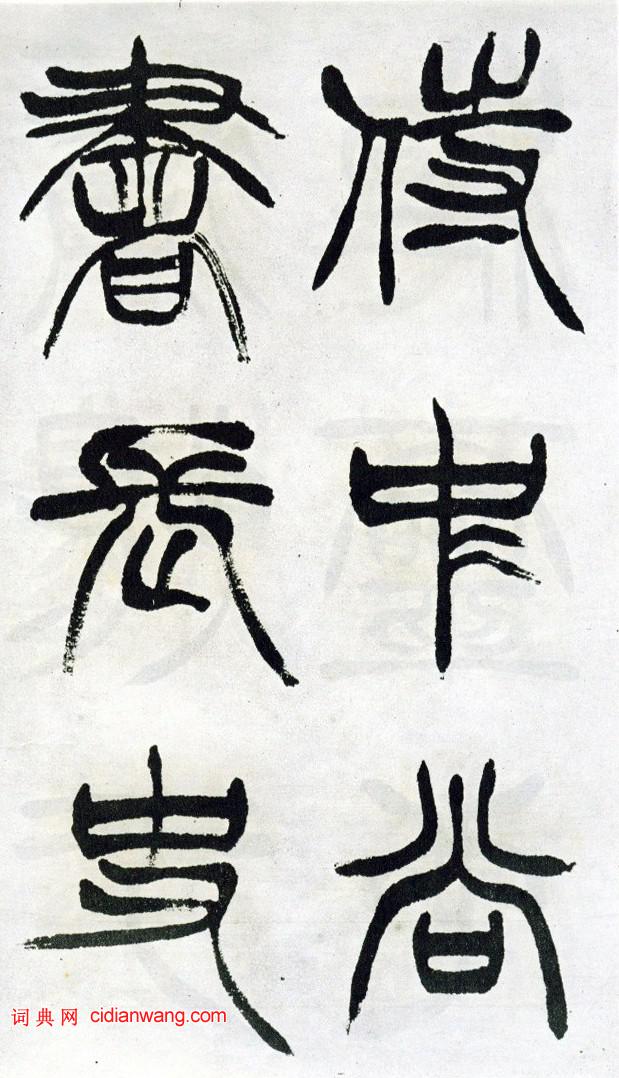 侍中尚
書長史
词典网 cidianwang.com